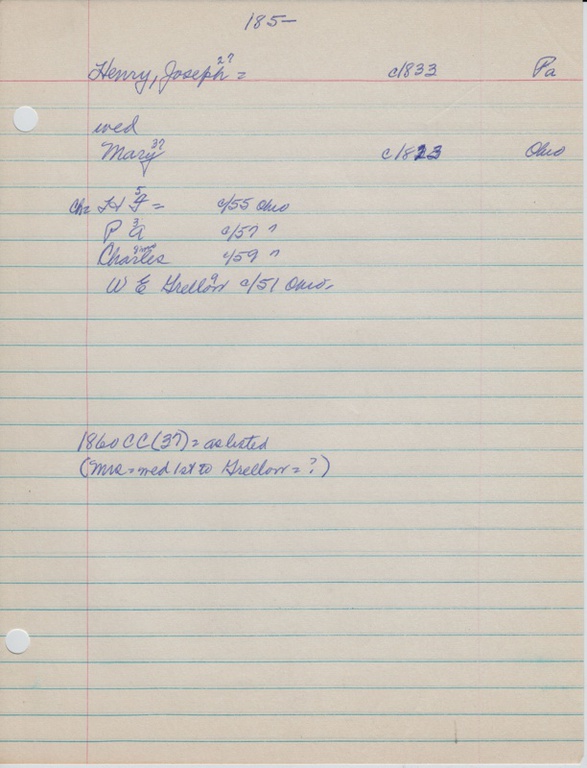 185-
Henry, Joseph 27 = c1833 Pa
wed
Mary 37 c1823 Ohio
Ch= H F 5 = c/55 Ohio
P A 3 c/57 "
Charles 9/mos c/59 "
W E Grellon 9 c/51 Ohio.
1860 CC (37) = as listed
(Mrs = wed 1st to Grellon = ?)